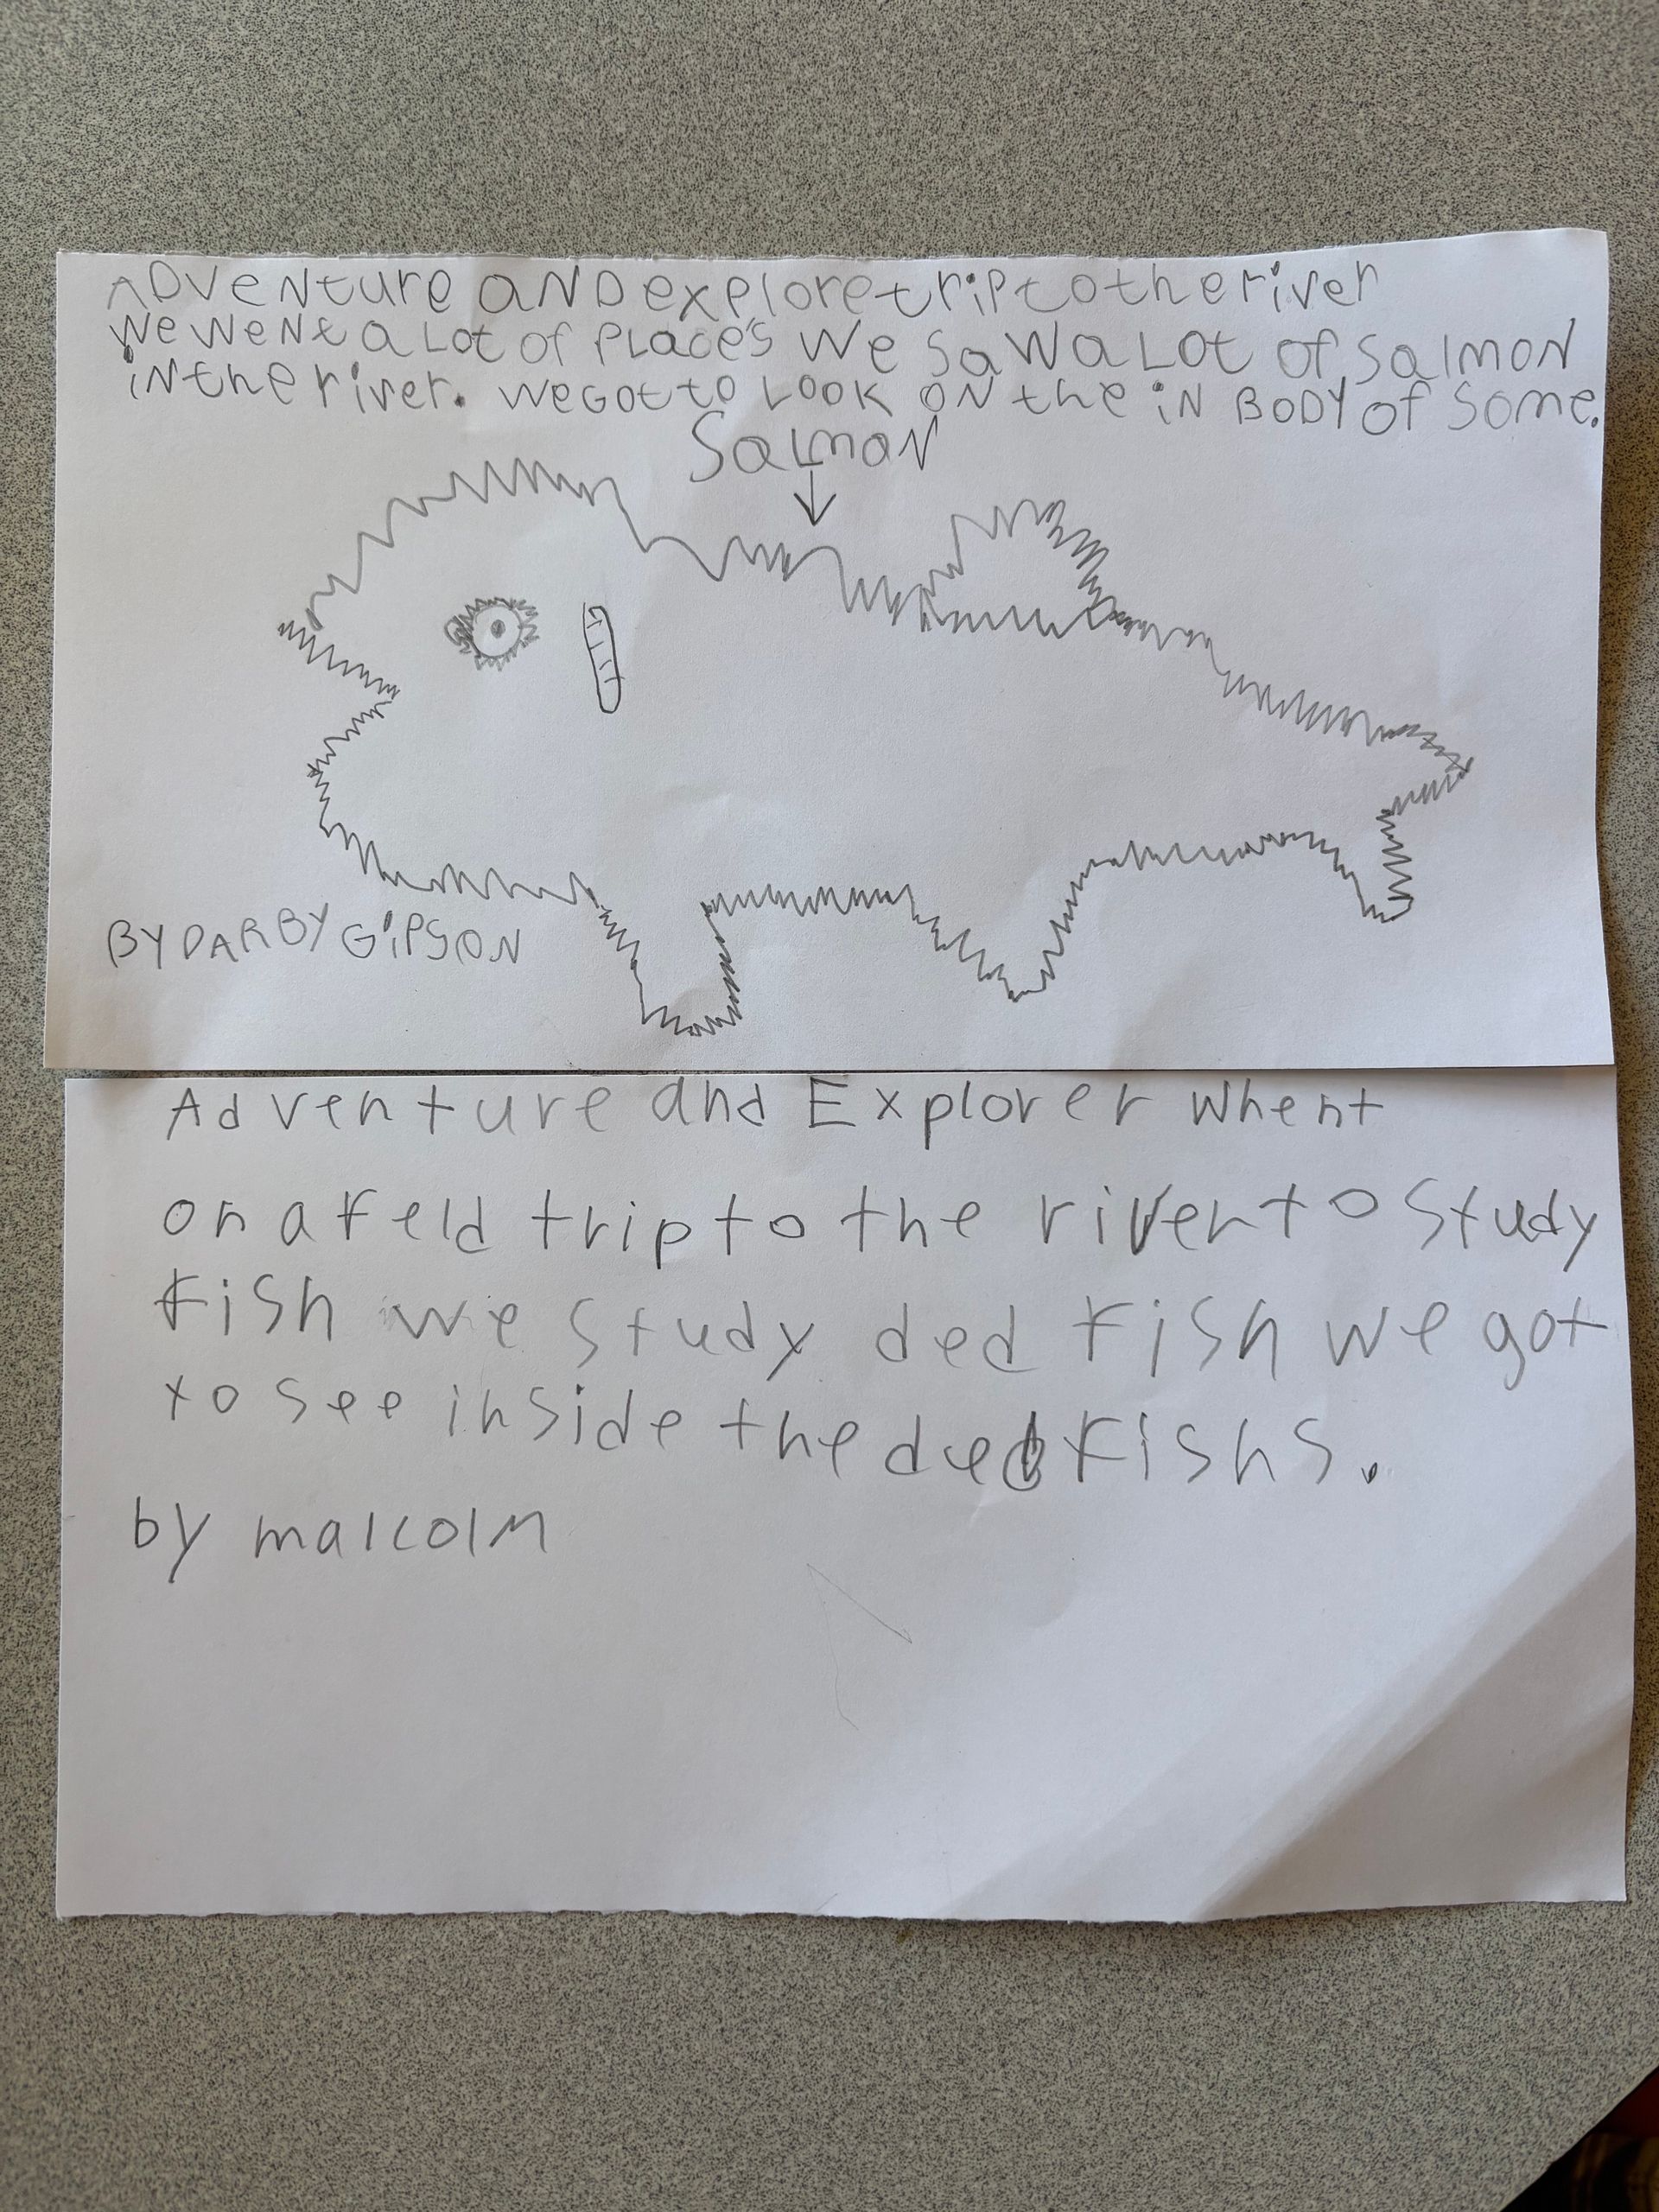 ADVeNture aND explore trip to the river
We WeNt a Lot of PLace's We SaW a Lot of Salmon
iN the river. We Got to Look oN the iN BODY of Some.
SaLmoN
BY DARBY GiPSON
Adventure and Explorer Whent
on a feld trip to the river to Study
fish we Study ded fish we got
to see inside the ded fishs.
by malcolm